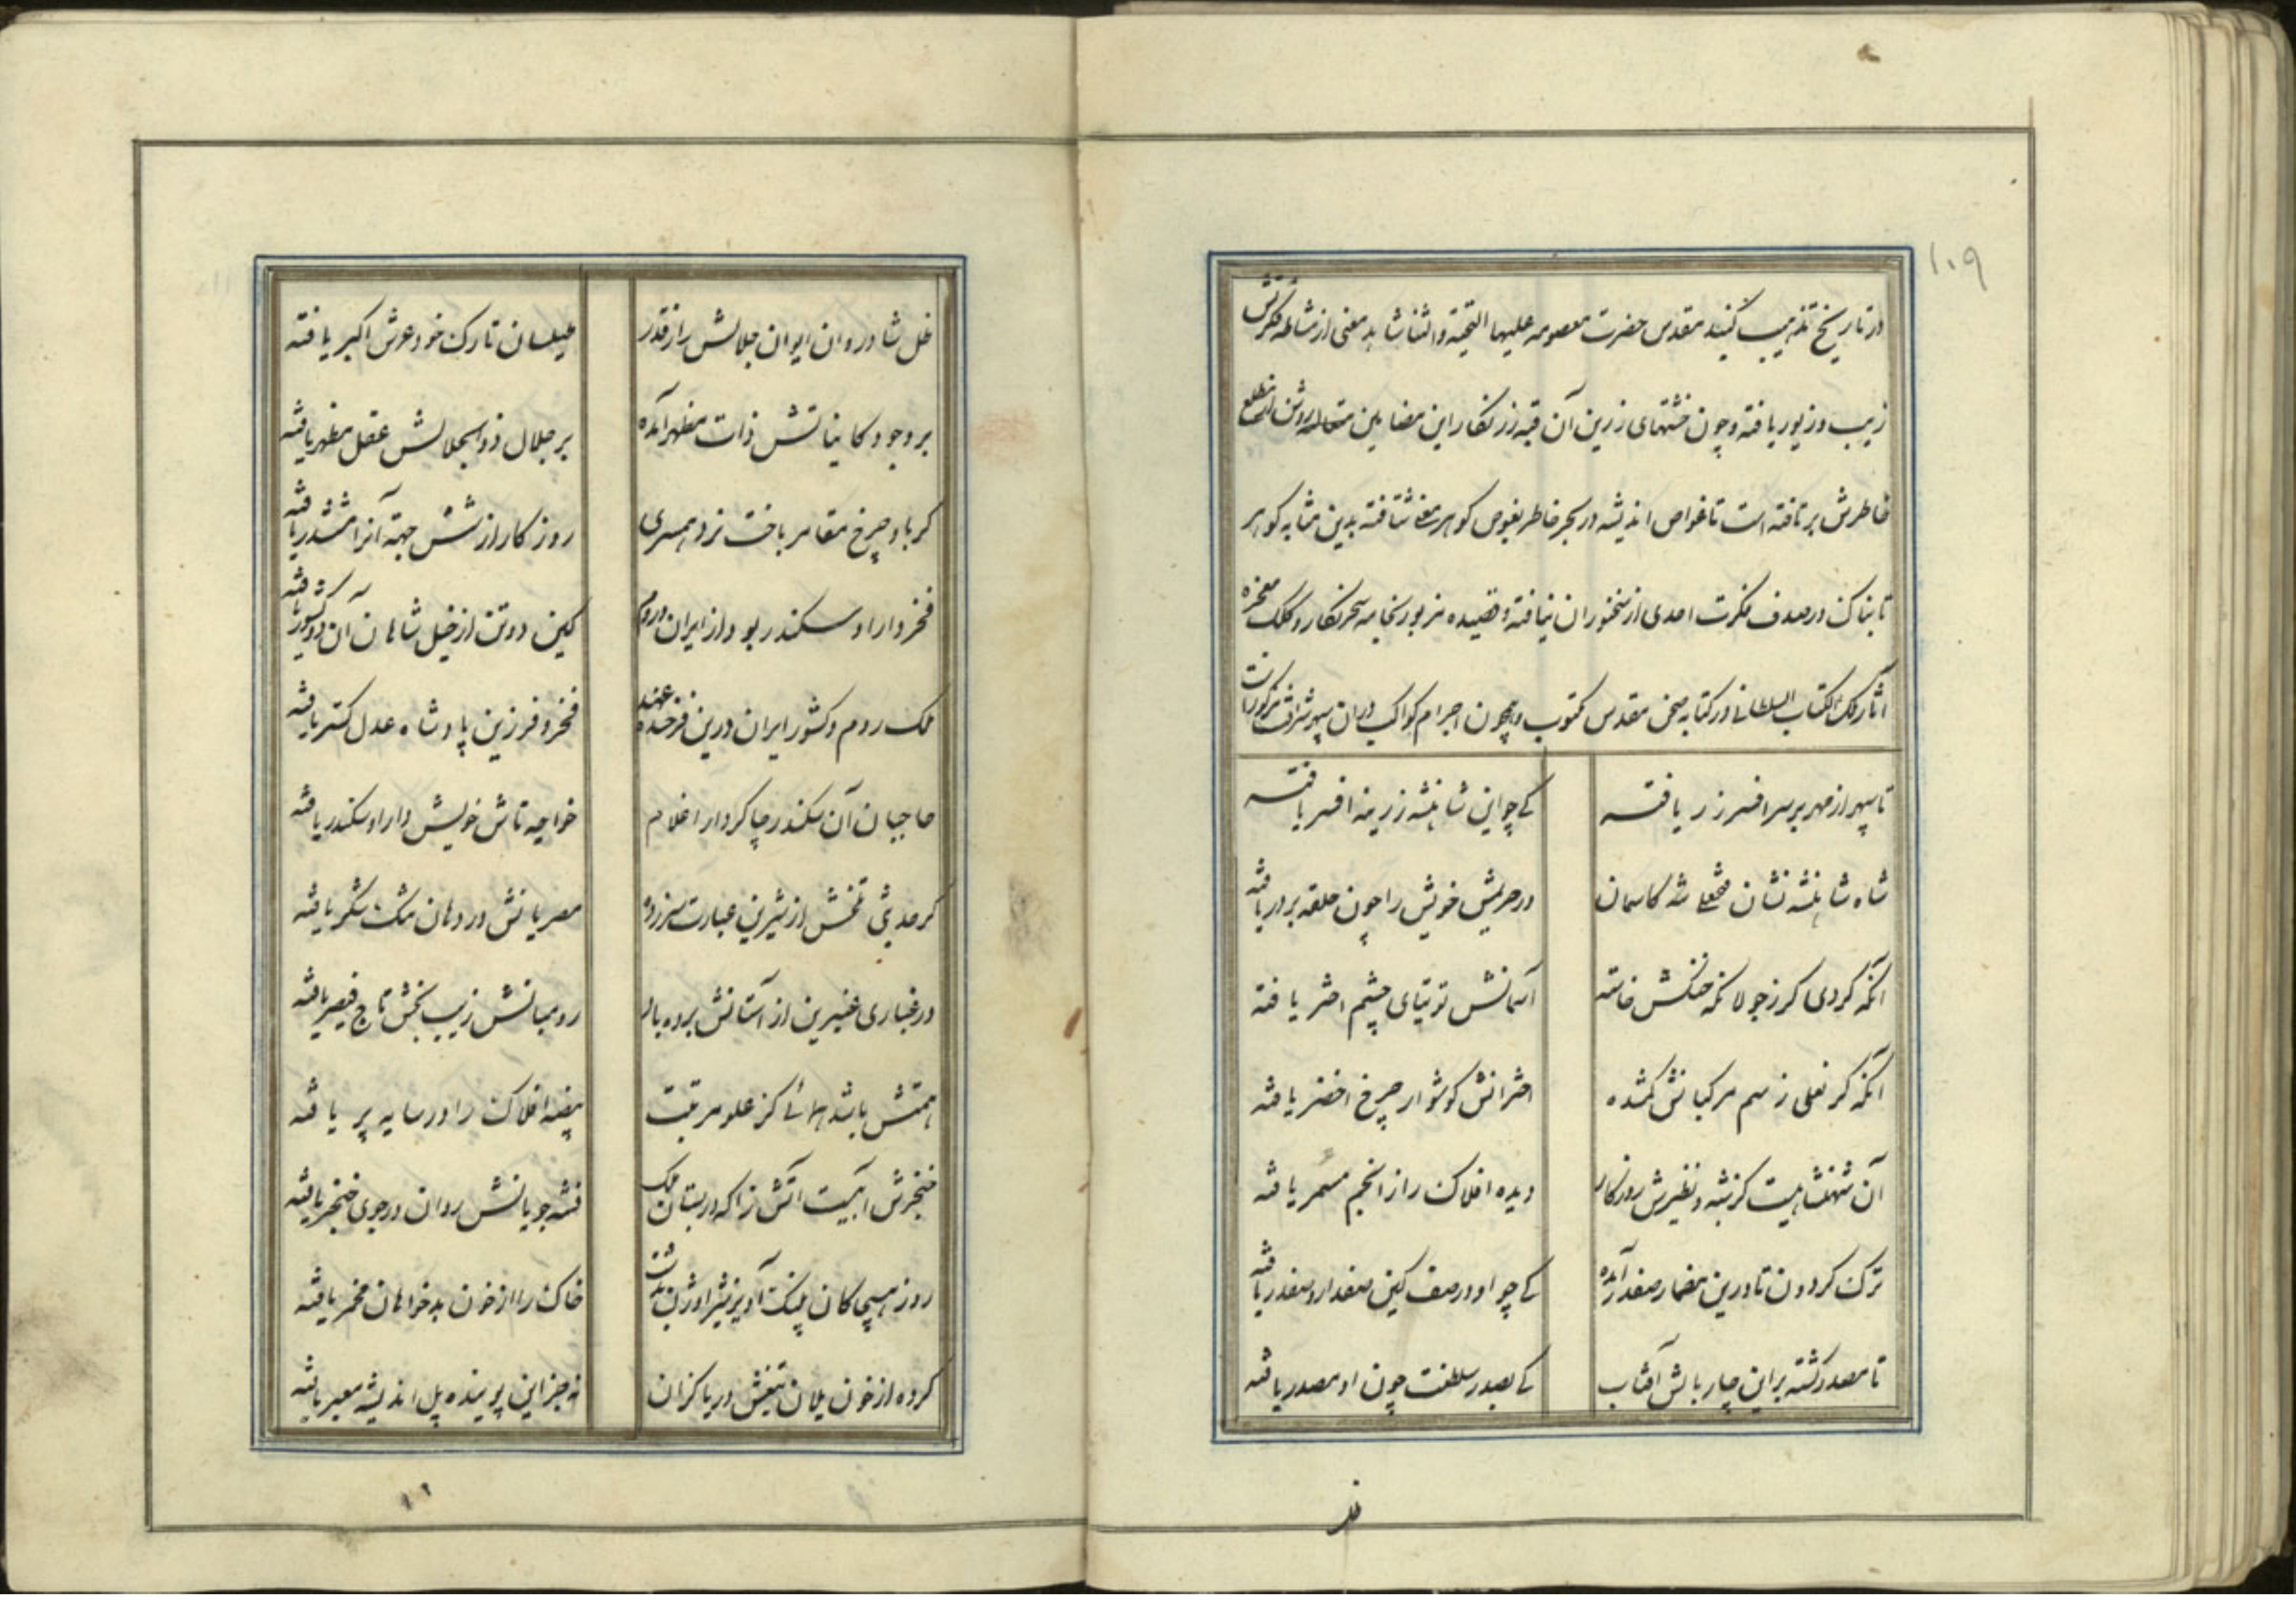 ۱۰۹
در تاریخ تذهیب گنبد مقدس حضرت معصومه علیها التحیة و الثنا شاهد معنی از مشاطه فکرتش
زیب و زیور یافته و چون خشتهای زرین آن قبه زرنگار این مضامین متعالیه روشن از مطلع
خاطرش برتافته است تا غواص اندیشه در بحر خاطر بغوص گوهر معنی شتافته بدین مثابه گوهر
تابناک در صدف فکرت احدی از سخنوران نیافته و قصیده مزبور بخامه سحر نگار و کلک معجزه
آثار ملک الکتاب السلطانی در کتابه صحن مقدس مکتوب و همچون اجرام کواکب در آن سپهر شرافت مرکوزست
تا سپهر از مهر بر سر افسر زر یافته
کی چو این شاهنشه زرینه افسر یافته
شاه شاهنشه نشان فتحعلی شه کاسمان
در حریمش خویش را چون حلقه بر در یافته
آنکه گردی کز جولانگه خنگش خاسته
آسمانش توتیای چشم اختر یافته
آنکه گر نعلی ز سم مرکبانش گمشده
اخترانش گوشوار چرخ اخضر یافته
آن شهنشاهیست کز شبه و نظیرش روزگار
دیده افلاک را از انجم مسمر یافته
ترک گردون تا درین مضمار صفدر آمده
کی چو او در صف کین صفدار و صفدر یافته
تا مصدر گشته بر این چار بالش آفتاب
کی بصدر سلطنت چون او مصدر یافته
ظل شادروان ایوان جلالش را ز قدر
طیلسان تارک خود عرش اکبر یافته
بر وجود کایناتش ذات مظهر آمده
بر جلال ذوالجلالش عقل مظهر یافته
گر با و چرخ مقامر باخت نرد همسری
روزگار از شش جهة آنرا مششدر یافته
فخر دارا و سکندر بود از ایران و روم
کین دو تن از خیل شاهان آن دو کشور یافته
ملک روم و کشور ایران درین فرخنده عهد
فخر و فر زین پادشاه عدل گستر یافته
حاجبان آن سکندر چاکر دارا غلام
خواجه تاش خویش دارا و سکندر یافته
گر حدیثی تلخش از شیرین عبارت سر زده
مصریانش در دهان تنگ شکر یافته
در غباری عنبرین از آستانش برده باد
رومیانش زیب بخش تاج قیصر یافته
همتش باشد همائی کز علو مرتبت
بیضه افلاک را در سایه پر یافته
خنجرش آبیست آتش زا که در بستان ملک
فتنه جویانش روان در جوی خنجر یافته
روز هیجا کان پلنگ آویز شیر اوژن بدشت
خاک را از خون بدخواهان مخمر یافته
کرده از خون یلان تیغش دریا کز آن
نه جز این پوینده پل اندیشه معبر یافته